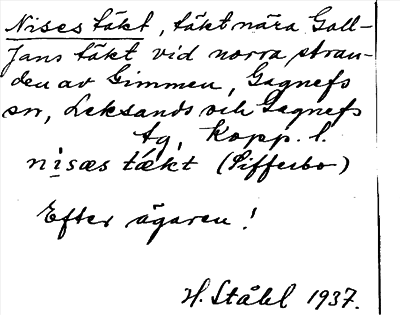 Nises täkt, täkt nära Goll-
Jans täkt vid norra stran-
den av Gimmen, Gagnefs
sn, Leksands och Gagnefs
tg, Kopp. l.
nisæs tækt (Sifferbo)
Efter ägaren!
H. Ståhl 1937.